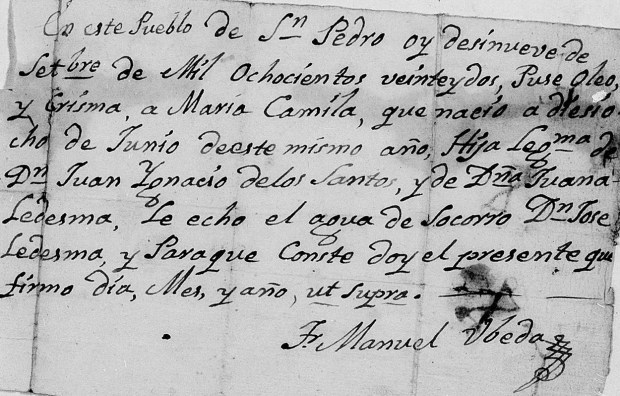 En este Pueblo de Sn Pedro oy desinueve de
Setbre de Mil Ochocientos veinteydos, Puse Oleo,
y Crisma, a Maria Camila, que nacio a diesio
cho de Junio deeste mismo año, Hija Legma de
Dn Juan Ygnacio delos Santos, y de Dña Juana
Ledesma, Le echo el agua de Socorro Dn Jose
Ledesma, y Paraque Conste doy el presente que
firmo dia, Mes, y año, ut supra.
Fr Manuel Ubeda